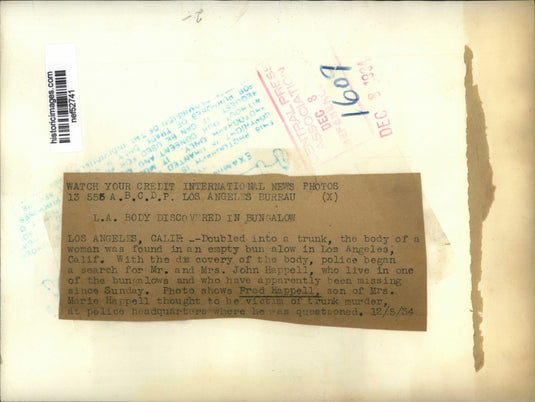 historicimages.com
nef52741
CENTRAL PRESS
ASSOCIATION
DEC 8
1609
DEC 8 1934
WATCH YOUR CREDIT INTERNATIONAL NEWS PHOTOS
13 555 A.B.C.D.P. LOS ANGELES BUREAU (X)
L.A. BODY DISCOVERED IN BUNGALOW
LOS ANGELES, CALIF --Doubled into a trunk, the body of a
woman was found in an empty bungalow in Los Angeles,
Calif. With the discovery of the body, police began
a search for Mr. and Mrs. John Happell, who live in one
of the bungalows and who have apparently been missing
since Sunday. Photo shows Fred Happell, son of Mrs.
Marie Happell thought to be victim of trunk murder,
at police headquarters where he was questioned. 12/5/34